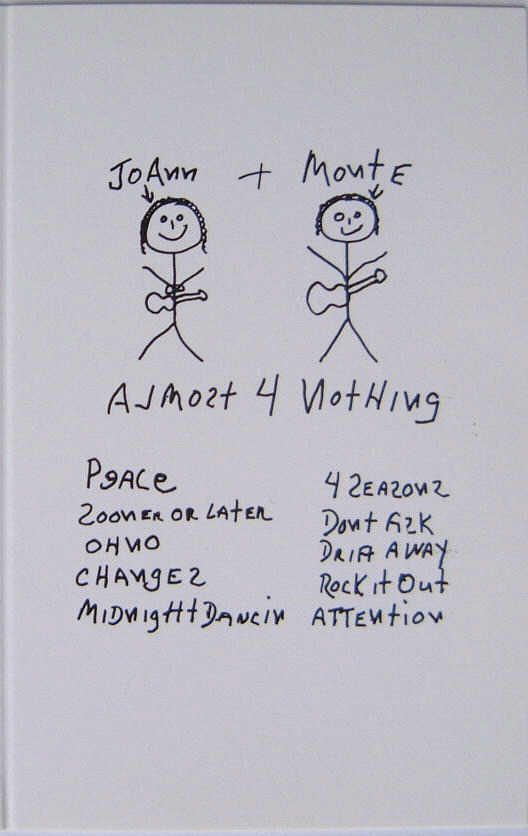 JoAnn + MontE
ALMOST 4 NotHing
PeACe
SOONER OR LATER
OH NO
CHANGES
MIDNigHt DANCiN
4 SEASONS
Dont ASK
DRIFt AWAY
RocK it Out
ATTEntioN